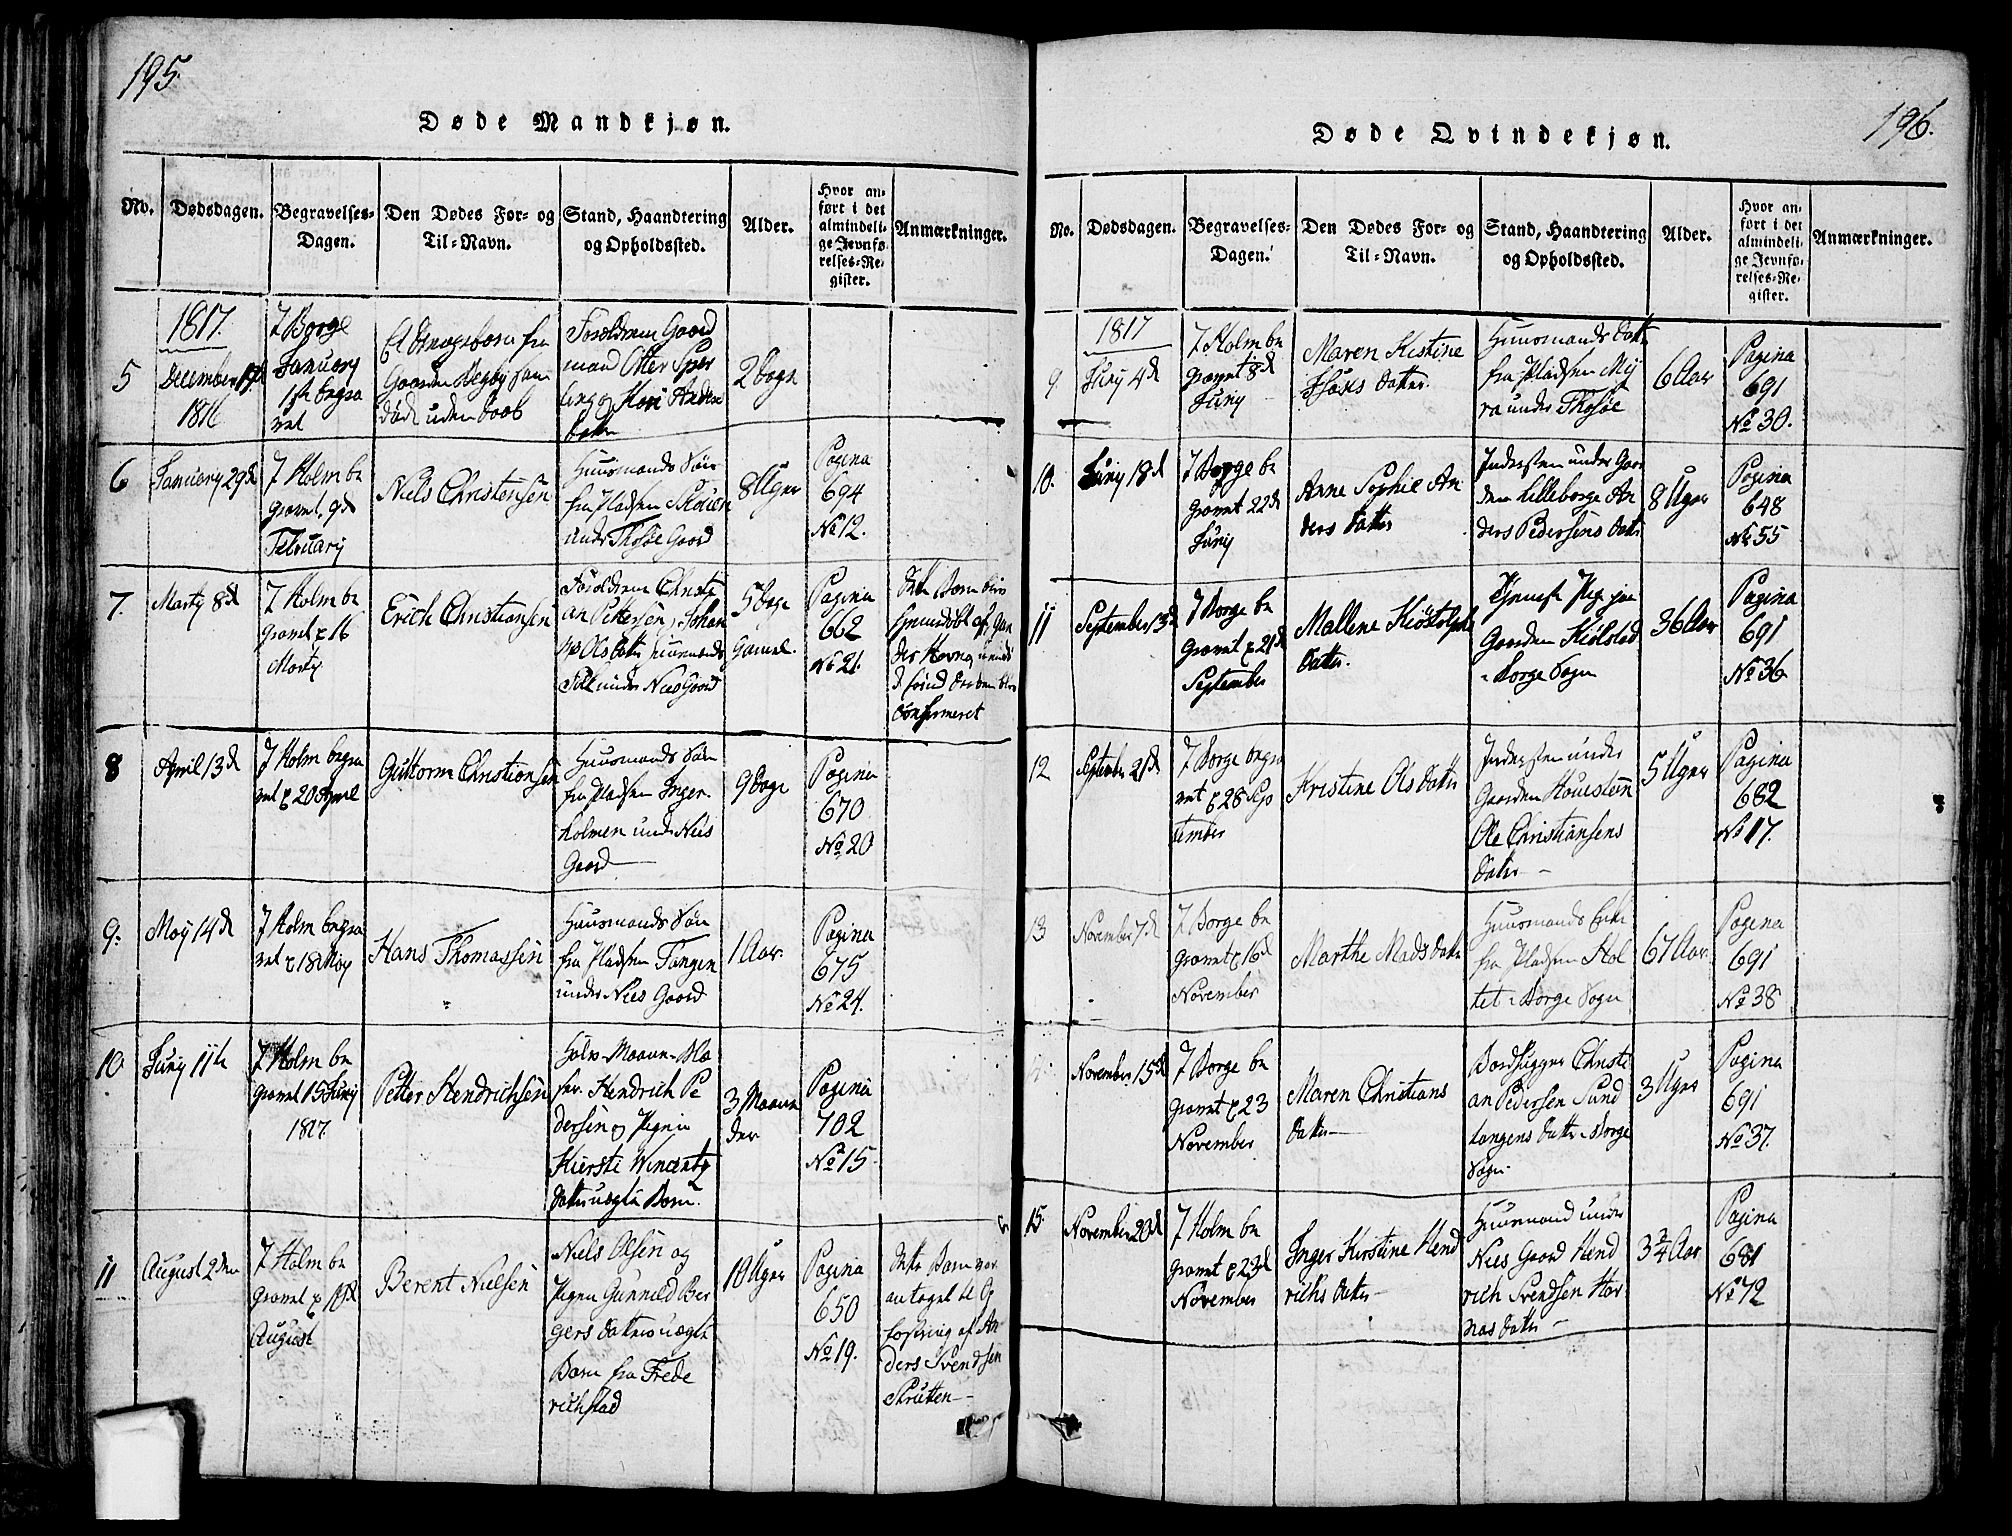 195.
Døde Mandkjøn.
No.
Dødsdagen.
Begravelses-
Dagen.
Den Dødes For- og
Til-Navn.
Stand, Haandtering
og Opholdssted.
Alder.
Hvor an-
ført i det
almindeli-
ge Jevnfø-
relses-Re-
gister.
Anmærkninger.
5
1817.
December
1816
I Borge
January
begra
vet
Et Drengebarn fra
Gaarden
død uden Daab
Forældrene Gaard
mand
og Kari Anders
Datter
2 Dage
6
January 29d
I Holm be
gravet 9d
February
Niels Christensen
Huusmands Søn
fra Pladsen
under Thosøe Gaard
8 Uger
Pagina
694
No 12.
7.
Marty 8d
I Holm be
gravet d 16
Marty
Erich Christiansen
Forældrene Christi
an Pettersen, Johan
Ols Datter Huusmands
under Nies Gaard
5 Dage
Gamel.
Pagina
662
No 21.
Dette Barn blev
hiemmedøbt af
der
Confirmeret
8
April 13d
I Holm begra
vet d 20 April
Guttorm Christiansen
Huusmands Søn
fra Pladsen Inger
holmen under Nies
Gaard
9 Dage
Pagina
670
No 20
9.
May 14d
I Holm begra
vet d 18 May
Hans Thomassen
Huusmands Søn
fra Pladsen Tangen
under Nies Gaard
1 Aar.
Pagina
675
No 24.
10.
Juny 11te
I Holm be
gravet 15 Juny
1817.
Petter Hendrichsen
Hendrich Pe
dersen og Pigen
Kiersti Wincents
Datter uægte Barn.
3 Maane
der
Pagina
702
No 15
11
August 2den
I Holm be
gravet d 10d
August
Berent Nielsen
Niels Olsen og
Pigen Gunnild Ber
gers Datters uægte
Barn fra Frede
richstad
10 Uger
Pagina
650
No 19.
Dette Barn var
antaget til Op
fostring af An
ders Svendsen
Skrutten
196.
Døde Qvindekjøn.
No.
Dødsdagen.
Begravelses-
Dagen.
Den Dødes For- og
Til-Navn.
Stand, Haandtering
og Opholdssted.
Alder.
Hvor an-
ført i det
almindeli-
ge Jevnfø-
relses-Re-
gister.
Anmærkninger.
9.
1817
Juny 4d
I Holm be
gravet 8d
Juny
Maren Kistine
Datter.
Huusmands Datter
fra Pladsen My
ra under Thosøe
6 Aar
Pagina
691
No 30.
10.
Juny 18d
I Borge be
gravet 22d
Juny
Anne Sophie An
ders Datter
Indersten under Gaar
den Lilleborge An
ders Pedersens Datter
8 Uger
Pagina
648
No 55
11
September 13d
I Borge be
gravet d 21d
September
Mallene Kiöstolphs
Datter.
Tjeneste Pige paa
Gaarden Kiölstad
i Borge Sogn
36 Aar
Pagina
691
No 36
12
September 21d
I Borge begra
vet d 28 Sep
tember
Kristine Ols Datter
Indersten under
Gaarden Houesteen
Ole Christiansens
Datter
5 Uger
Pagina
682
No 17.
13
November 7d
I Borge be
gravet d 16d
November
Marthe Mads Datter
Huusmands Enke
fra Pladsen Hol
tet i Borge Sogn
67 Aar
Pagina
691
No 38
November 15d
I Borge be
gravet d 23
November
Maren Christians
Datter
Bordhugger Christi
an Pedersen Sund
tangens Datter i Borge
Sogn.
3 Uger
Pagina
691
No 37.
15.
November 20d
I Holm be
gravet d 23d
November
Inger Kirstine Hend
richs Datter
Huusmand under
Nies Gaard Hend
rich Svendsen Hor
næs Datter
3¾ Aar
Pagina
681
No 72